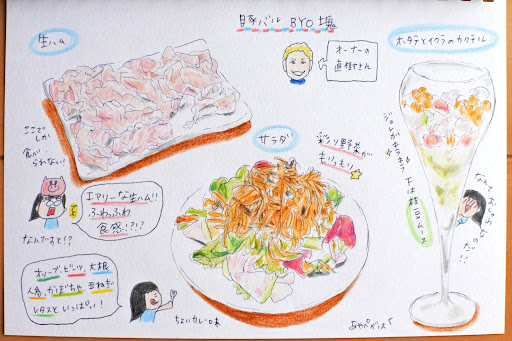 豚バル BYO 塊
生ハム
オーナーの
直樹さん
ホタテとイクラのカクテル
ここで
しか
食べ
られない!
エアリーな生ハム!!
ふわっふわ
食感!?!?
なんですと!?
サラダ
彩り野菜が
もりもり
ジュレがキラキラ
下は枝豆ムース
なんて
おしゃれな
のだ!!
オリーブ、ビーツ、大根
人参、かぼちゃ 玉ねぎ
レタスといっぱい!
ちょいカレー味